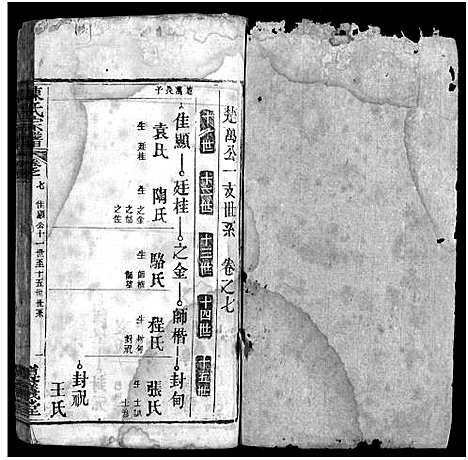 楚萬公一支世系 卷之七
十一世 十二世 十三世 十四世 十五世
楚萬長子
佳顯 廷桂 之金 師楷 封甸
袁氏 陶氏 駱氏 程氏 張氏
生 廷桂
生 之金 之郁 之佐
生 師楷 師望
生 封甸 封祝
生
封祝
王氏
陳氏宗譜 卷之七 佳顯公十一世至十五世世系 一
義堂